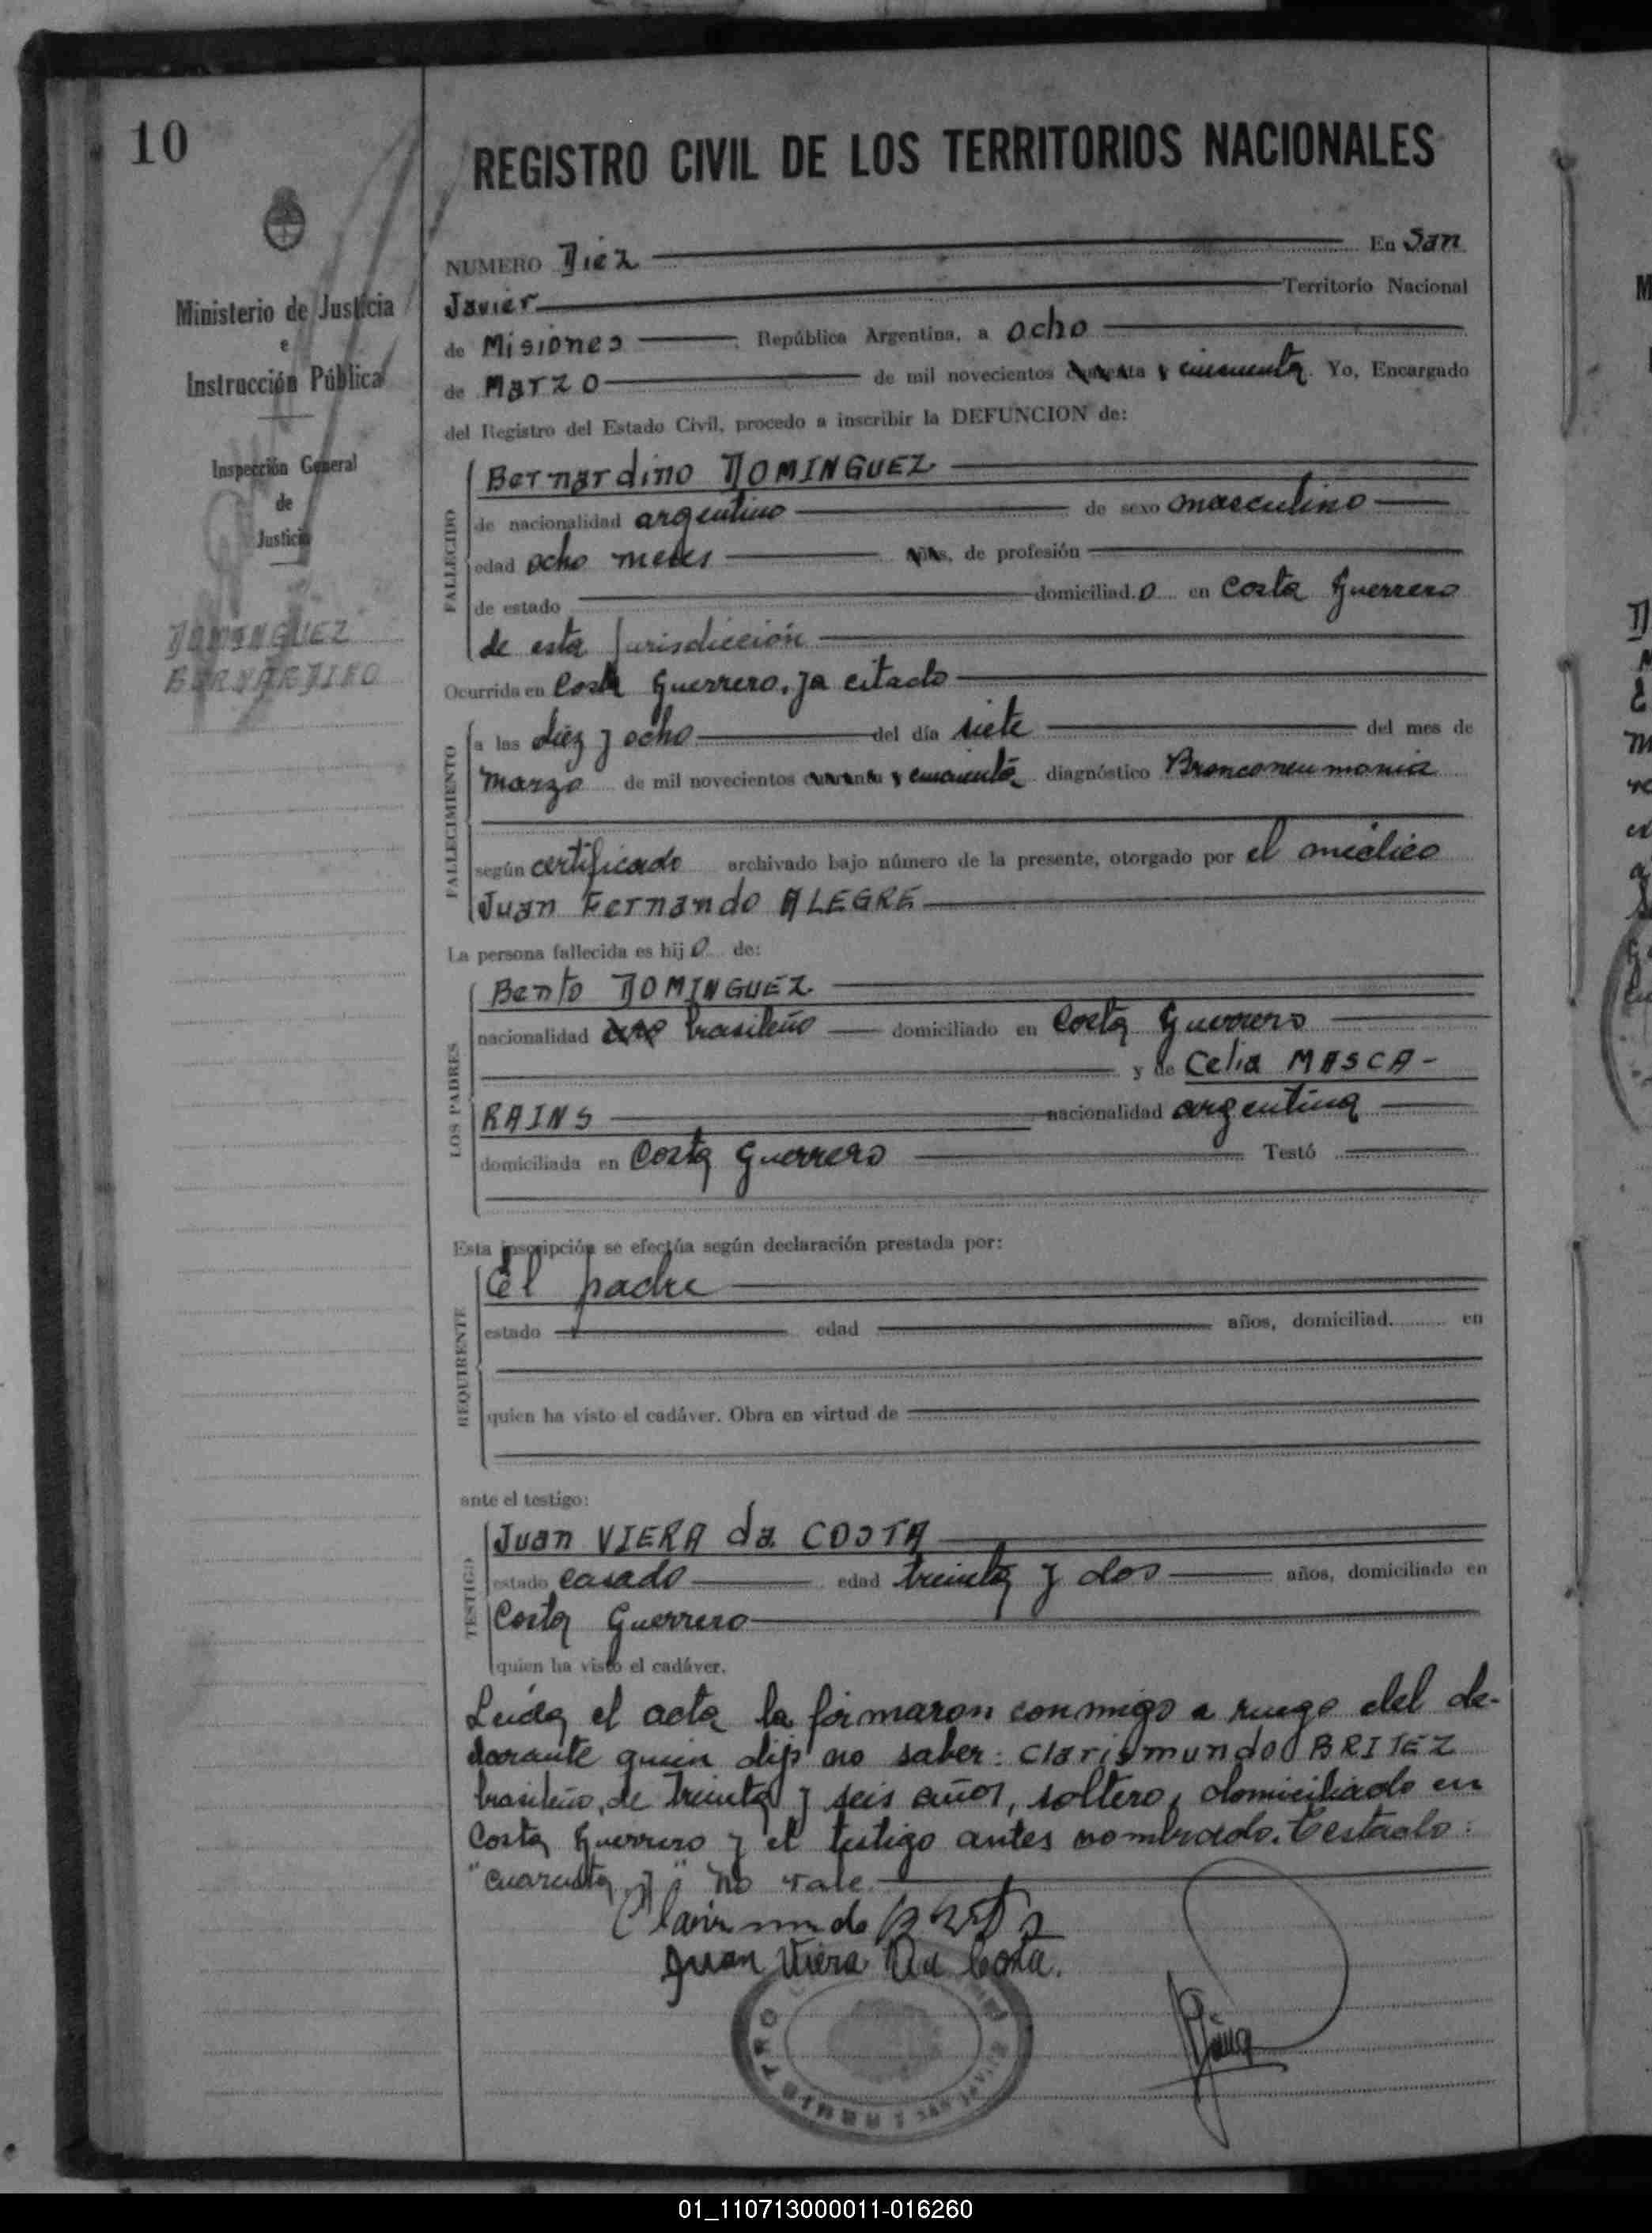 10
Ministerio de Justicia
e
Instrucción Pública
Inspección General
de
Justicia
DOMINGUEZ
BERNARDINO
REGISTRO CIVIL DE LOS TERRITORIOS NACIONALES
NUMERO Diez En San
Javier Territorio Nacional
de Misiones República Argentina, a ocho
de Marzo de mil novecientos cuarenta y cincuenta. Yo, Encargado
del Registro del Estado Civil, procedo a inscribir la DEFUNCION de:
FALLECIDO
Bernardino DOMINGUEZ
de nacionalidad argentino de sexo masculino
edad ocho meses años, de profesión
de estado domiciliad o en Costa Guerrero
de esta jurisdicción
Ocurrida en Costa Guerrero, ya citado
FALLECIMIENTO
a las diez y ocho del día siete del mes de
marzo de mil novecientos cuarenta y cincuenta diagnóstico Bronconeumonia
según certificado archivado bajo número de la presente, otorgado por el médico
Juan Fernando ALEGRE
La persona fallecida es hij o de:
LOS PADRES
Bento DOMINGUEZ
nacionalidad brasileño domiciliado en Costa Guerrero
y de Celia MASCA-
RAINS nacionalidad argentina
domiciliada en Costa Guerrero Testó
Esta inscripción se efectúa según declaración prestada por:
REQUIRENTE
El padre
estado edad años, domiciliad en
quien ha visto el cadáver. Obra en virtud de
ante el testigo:
TESTIGO
Juan VIERA da COSTA
estado casado edad treinta y dos años, domiciliado en
Costa Guerrero
quien ha visto el cadáver.
Leída el acta la firmaron conmigo a ruego del de-
clarante quien dijo no saber: Clarismundo BRITEZ
brasileño, de treinta y seis años, soltero, domiciliado en
Costa Guerrero y el testigo antes nombrado. Testado:
"cuarenta y" no vale.
Juan Viera Da Costa.
SAN JAVIER
01_110713000011-016260